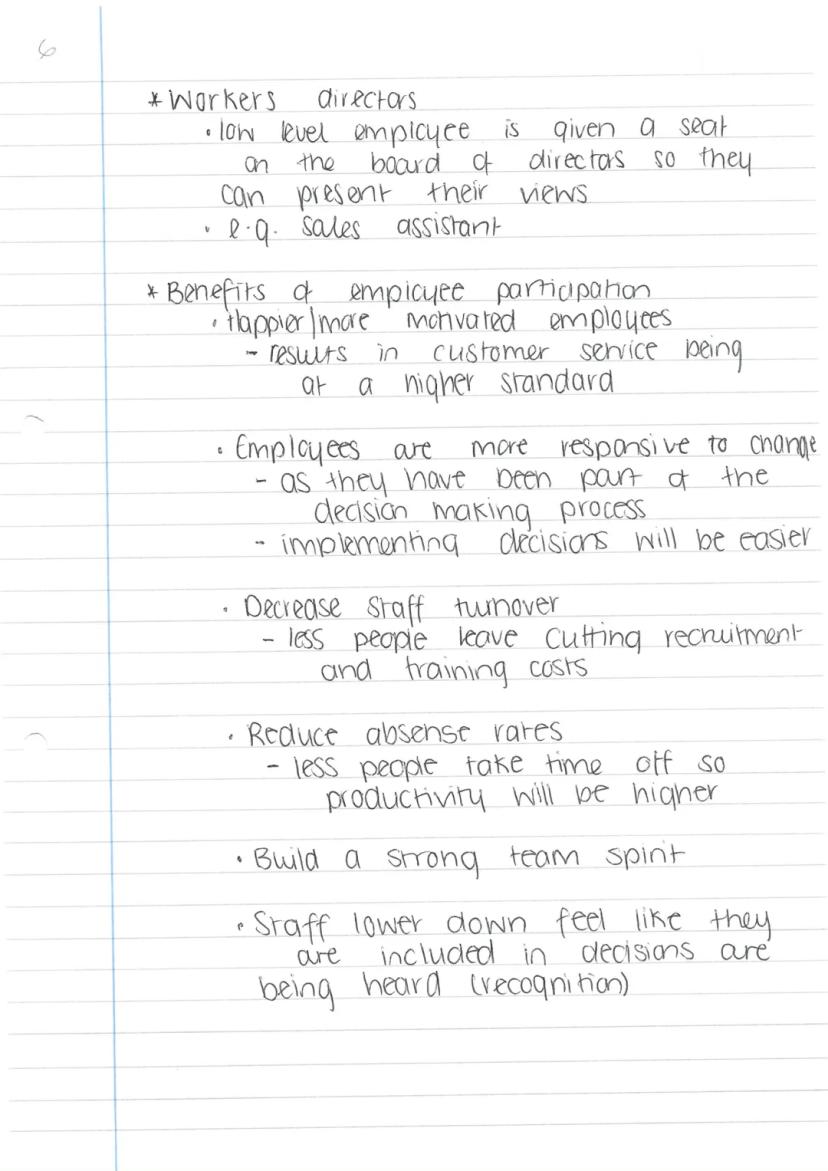 6
* Workers directors
• low level employee is given a seat
on the board of directors so they
can present their views
• e.g. sales assistant
* Benefits of employee participation
• Happier/more motivated employees
- results in customer service being
at a higher standard
• Employees are more responsive to change
- as they have been part of the
decision making process
- implementing decisions will be easier
• Decrease staff turnover
- less people leave cutting recruitment
and training costs
• Reduce absense rates
- less people take time off so
productivity will be higher
• Build a strong team spirit
• Staff lower down feel like they
are included in decisions are
being heard (recognition)